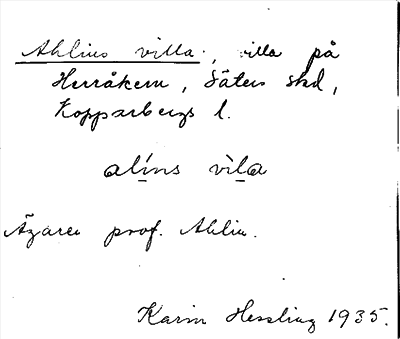 Ahlins villa, villa på
Herråkern, Säters skd,
Kopparbergs l.
alíns vìla
Ägaren prof. Ahlin.
Karin Hessling 1935.